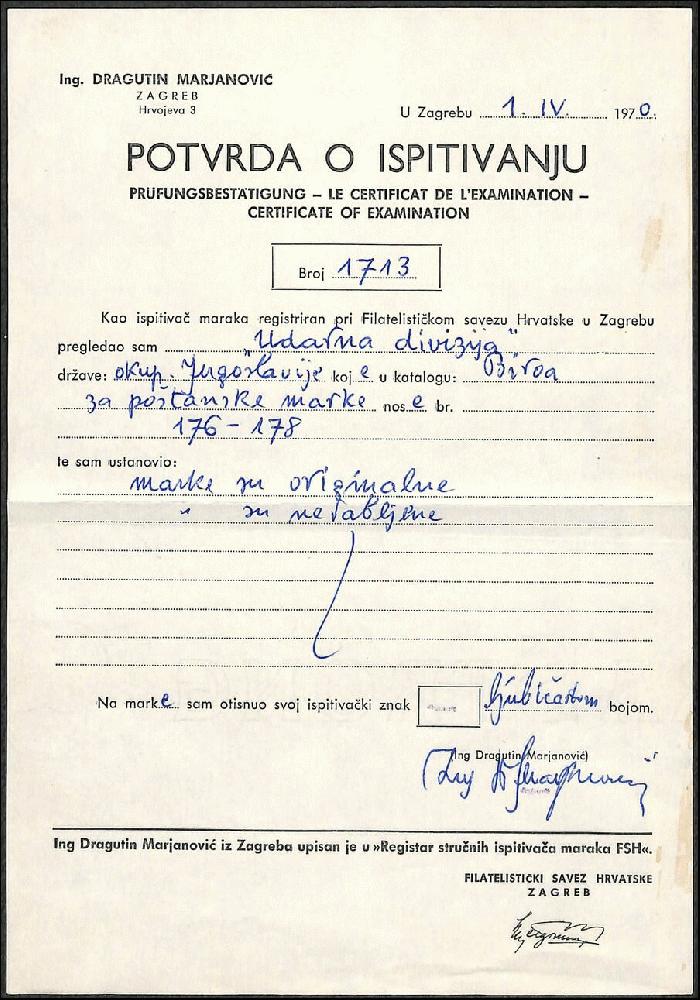 Ing. DRAGUTIN MARJANOVIĆ
ZAGREB
Hrvojeva 3
U Zagrebu 1. IV. 1970.
POTVRDA O ISPITIVANJU
PRÜFUNGSBESTÄTIGUNG – LE CERTIFICAT DE L'EXAMINATION –
CERTIFICATE OF EXAMINATION
Broj 1713
Kao ispitivač maraka registriran pri Filatelističkom savezu Hrvatske u Zagrebu
pregledao sam "Udarna divizija"
države: okup. Jugoslavije koje u katalogu:
za poštanske marke nose br.
176-178
te sam ustanovio:
marke su originalne
" su
Na marke sam otisnuo svoj ispitivački znak ljubičastom bojom.
(Ing Dragutin Marjanović)
Ing Dragutin Marjanović iz Zagreba upisan je u »Registar stručnih ispitivača maraka FSH«.
FILATELISTIČKI SAVEZ HRVATSKE
ZAGREB